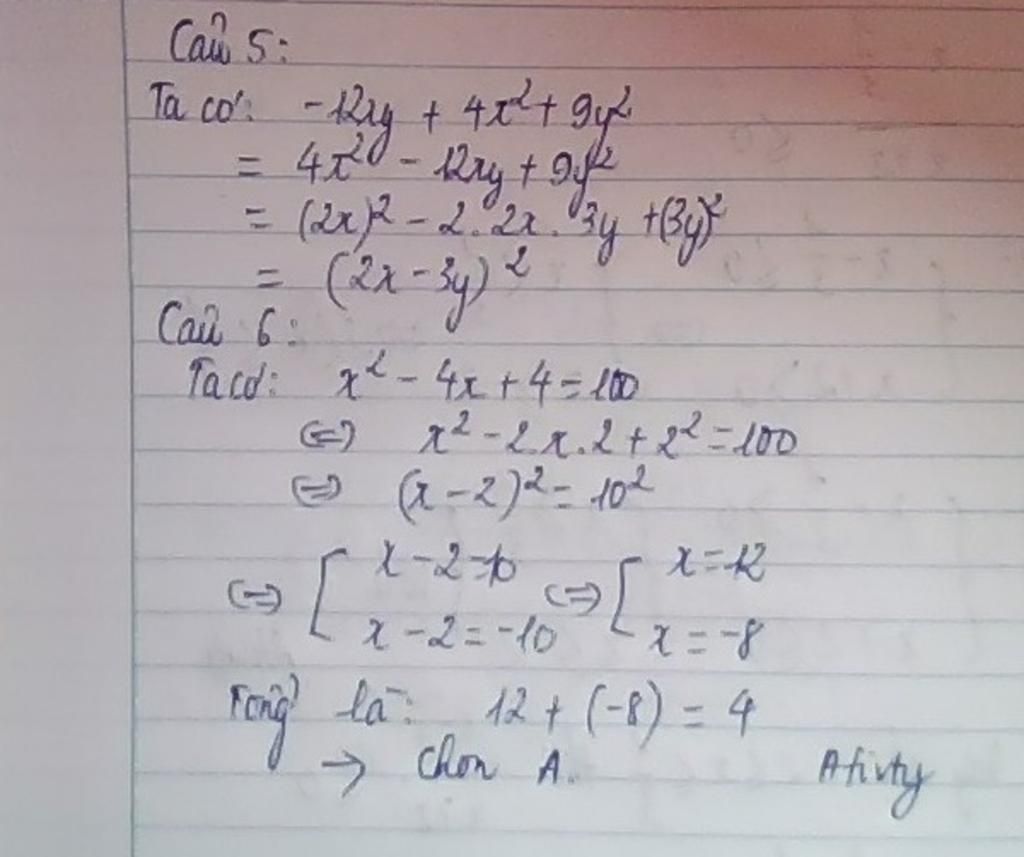 Câu 5:
Ta có: -12xy + 4x² + 9y²
= 4x² - 12xy + 9y²
= (2x)² - 2. 2x. 3y + (3y)²
= (2x - 3y)²
Câu 6:
Ta có: x² - 4x + 4 = 100
⇔ x² - 2.x.2 + 2² = 100
⇔ (x - 2)² = 10²
⇔ [ x - 2 = 10 ⇔ [ x = 12
x - 2 = -10 x = -8
Tổng là: 12 + (-8) = 4
→ Chọn A. Afivty